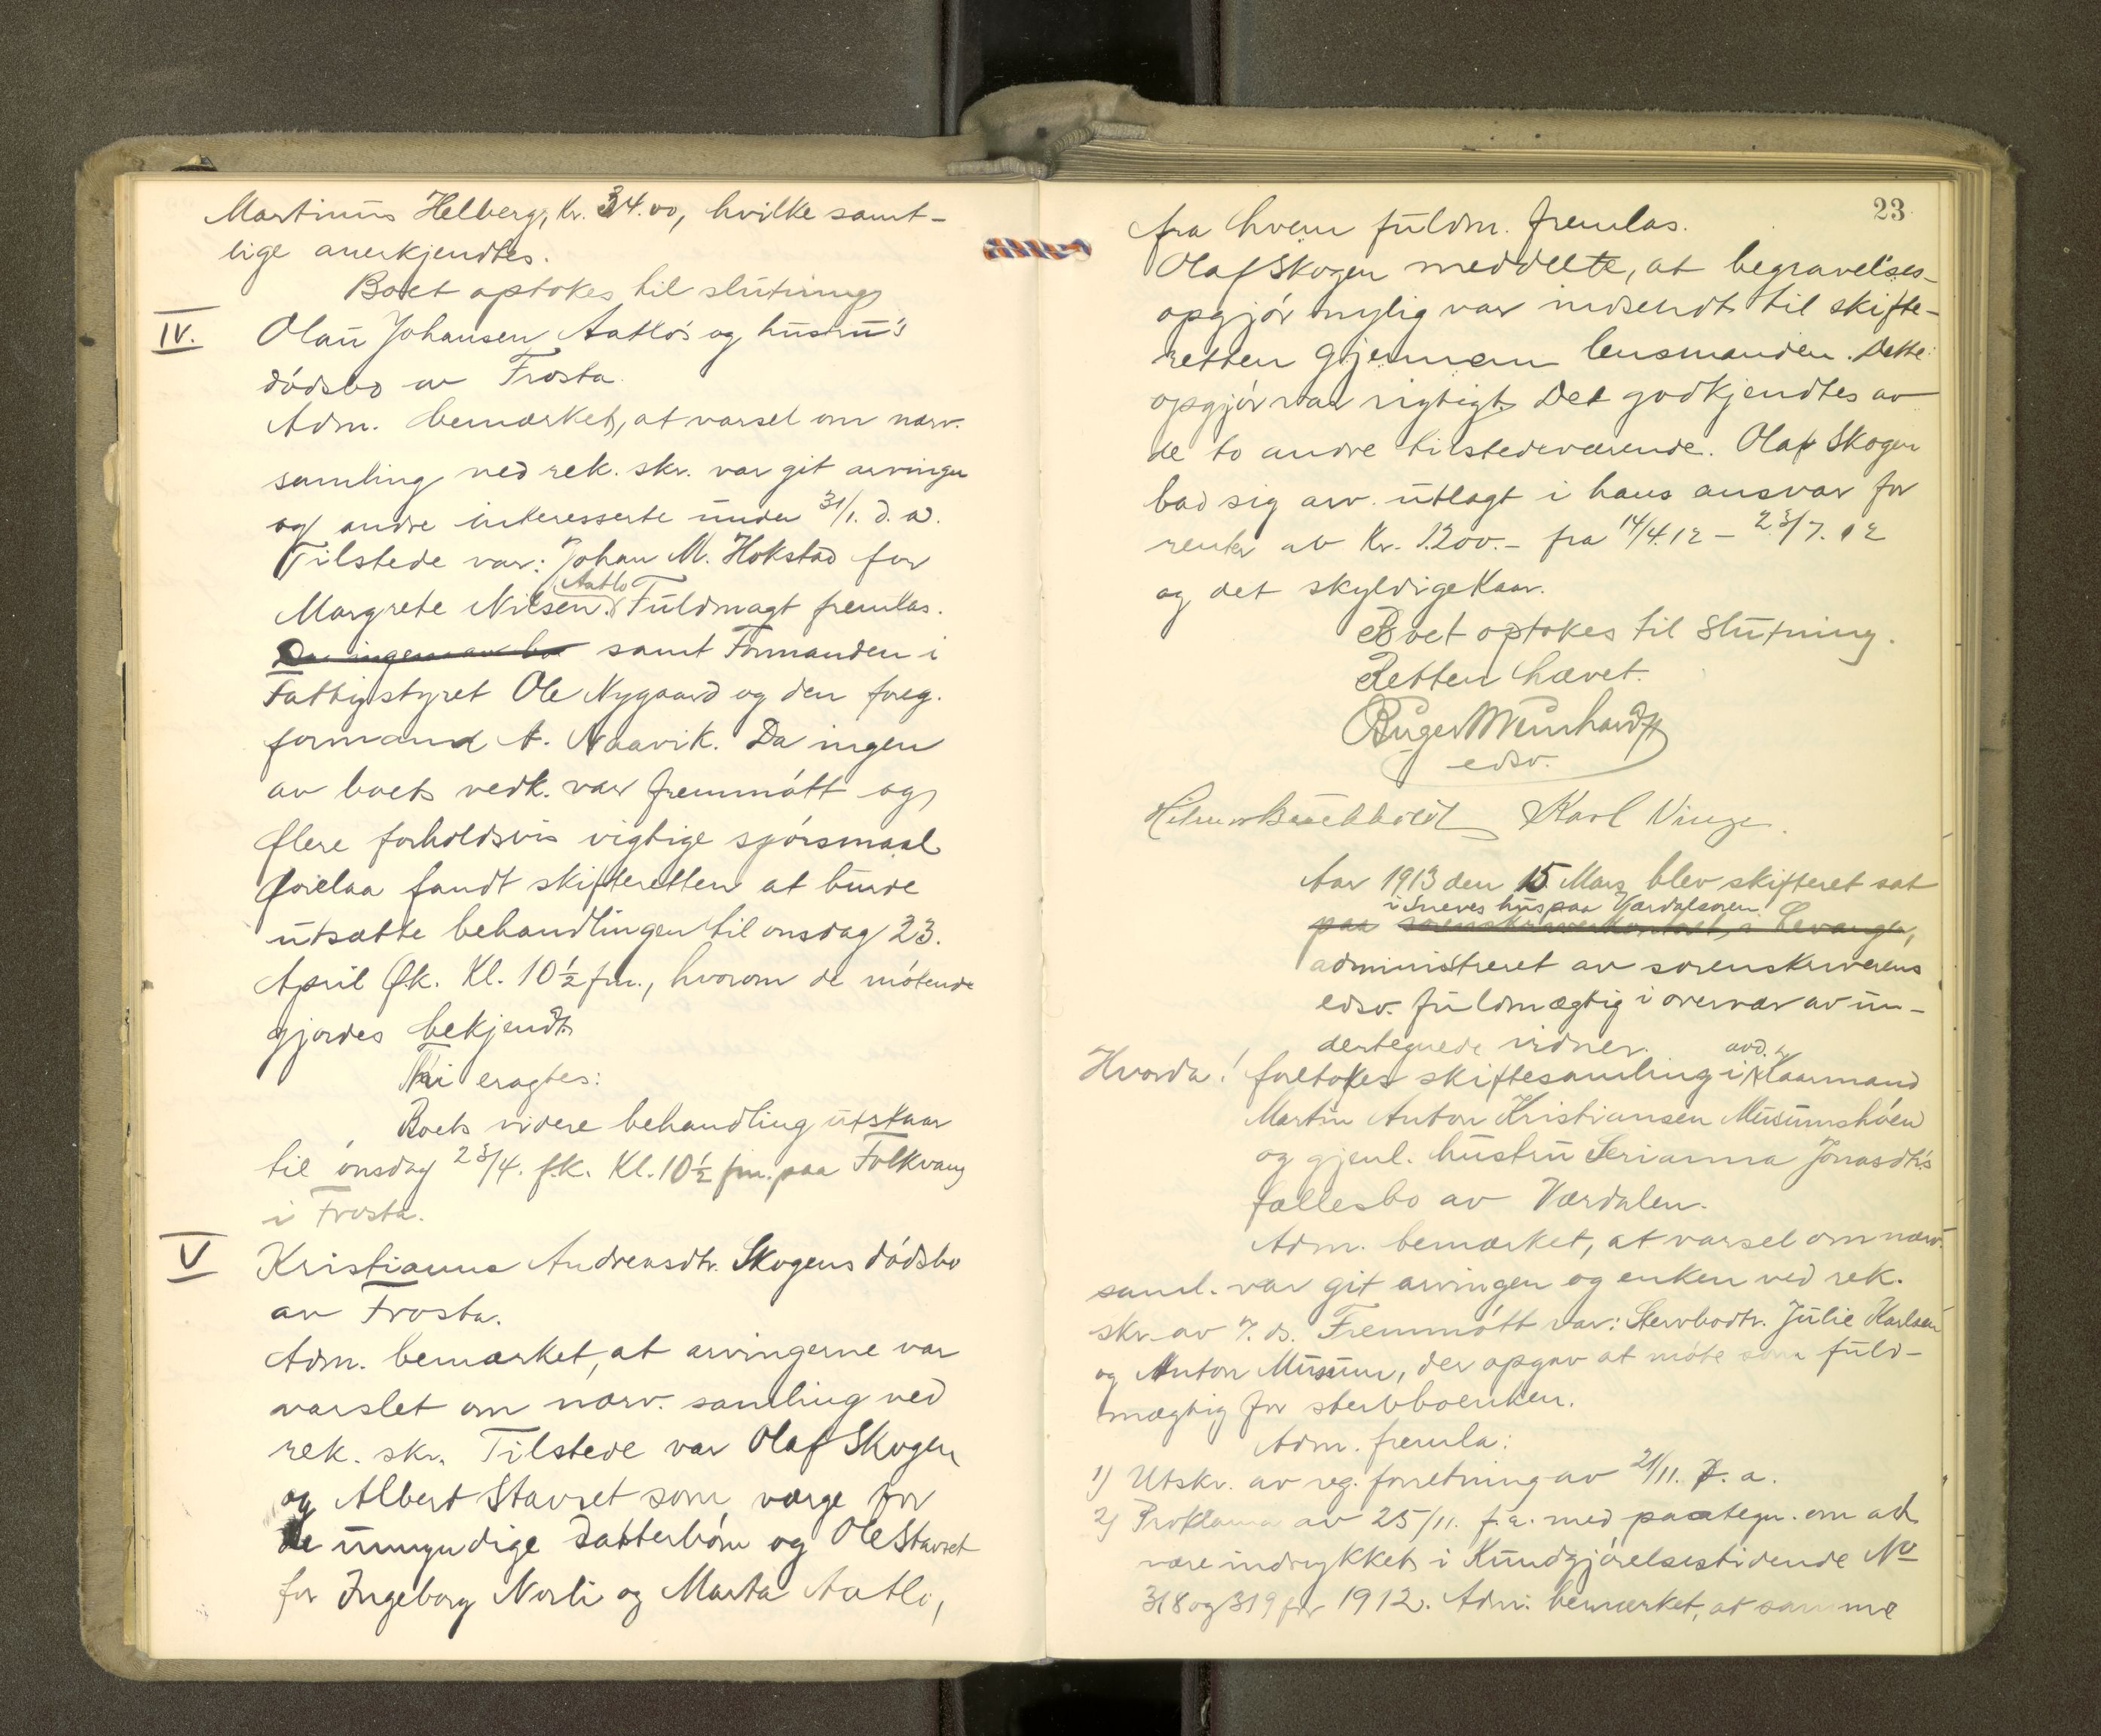 Martinus Helberg, Kr. 34.00, hvilke samt-
lige anerkjendtes.
Boet optokes til slutning
IV. Olau Johansen Aatlo's og hustru's
dødsbo av Frosta.
Adm. bemærket, at varsel om nærv.
samling ved rek. skr. var git arvinger
og andre interesserte under 31/1. d. a.
Tilstede var: Johan M. Hokstad for
Aatlo
Margrete Nilsen. Fuldmagt fremlas.
Da ingen av bo samt Formanden i
Fattigstyret Ole Nygaard og den foreg.
formand A. Naavik. Da ingen
av boets vedk. var fremmøtt og
flere forholdsvis vigtige spørsmaal
forelaa fandt skifteretten at burde
utsætte behandlingen til onsdag 23.
April fk. Kl. 10 ½ fm., hvorom de møtende
gjordes bekjendt.
Thi eragtes:
Boets videre behandling utstaar
til onsdag 23/4. f.k. Kl. 10 ½ fm. paa Folkvang
i Frosta.
V Kristianna Andreasdtr. Skogens dødsbo
av Frosta.
Adm. bemærket, at arvingerne var
varslet om nærv. samling ved
rek. skr. Tilstede var Olaf Skogen
og Albert Stavset som værge for
de umyndige datterbørn og Ole Stavset
for Ingeborg Norli og Marta Aatlo,
23
fra hvem fuldm. fremlas.
Olaf Skogen meddelte, at begravelses-
opgjør nylig var indsendt til skifte-
retten gjennem lensmanden. Dette
opgjør var rigtigt. Det godkjendtes av
de to andre tilstedeværende. Olaf Skogen
bad sig arv. utlagt i hans ansvar for
renter av Kr. 1200.- fra 14/4.12 - 23/7.12
og det skyldige Kaar.
Boet optokes til slutning.
Retten hævet.
Birger Meinhardt
edsv.
Hilmar Buchholdt Karl Vinge.
Aar 1913 den 15. Mars blev skifteret sat
i Sneves hus paa Værdalsøren
paa sorenskriverkontoret i Levanger,
administreret av sorenskriverens
edsv. fuldmægtig i overvær av un-
dertegnede vidner.
avd.
Hvorda! foretokes skiftesamling i Kaarmand
Martin Anton Kristiansen Musumshøen
og gjenl. hustru Serianna Jonasdtr's
fællesbo av Værdalen.
Adm. bemærket, at varsel om nærv.
saml. var git arvingen og enken ved rek.
skr. av 7. ds. Fremmøtt var: Stervbodtr. Julie Karlsen
og Anton Musum, der opgav at møte som fuld-
mægtig for stervboenken.
Adm. fremla:
1) Utskr. av reg. forretning av 21/11. f. a.
2) Proklama av 25/11. f.a. med paategn. om at
være indrykket i Kundgjørelsestidende No
318 og 319 for 1912. Adm. bemærket, at samme